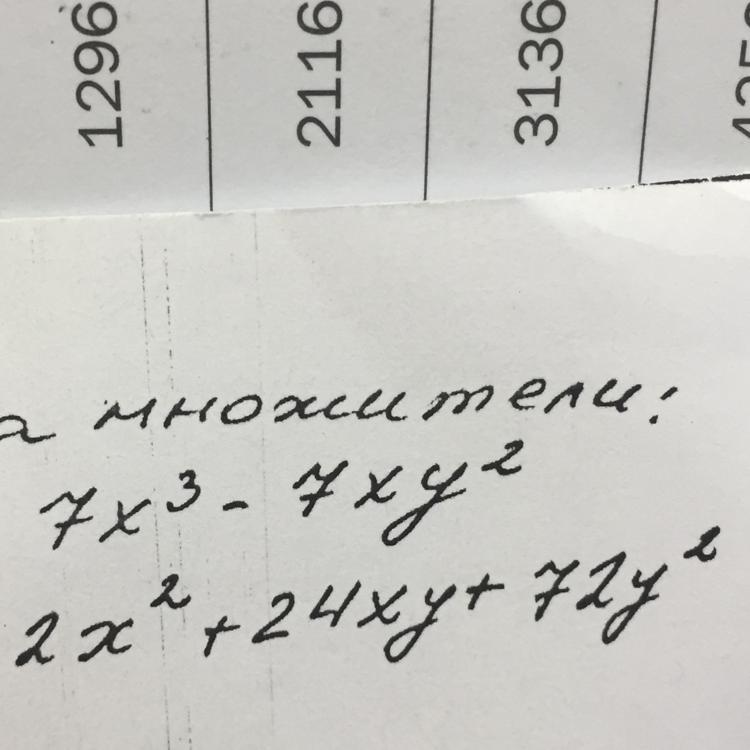 1296 2116 3136
а множители:
7x³ - 7xy²
2x² + 24xy + 72y²